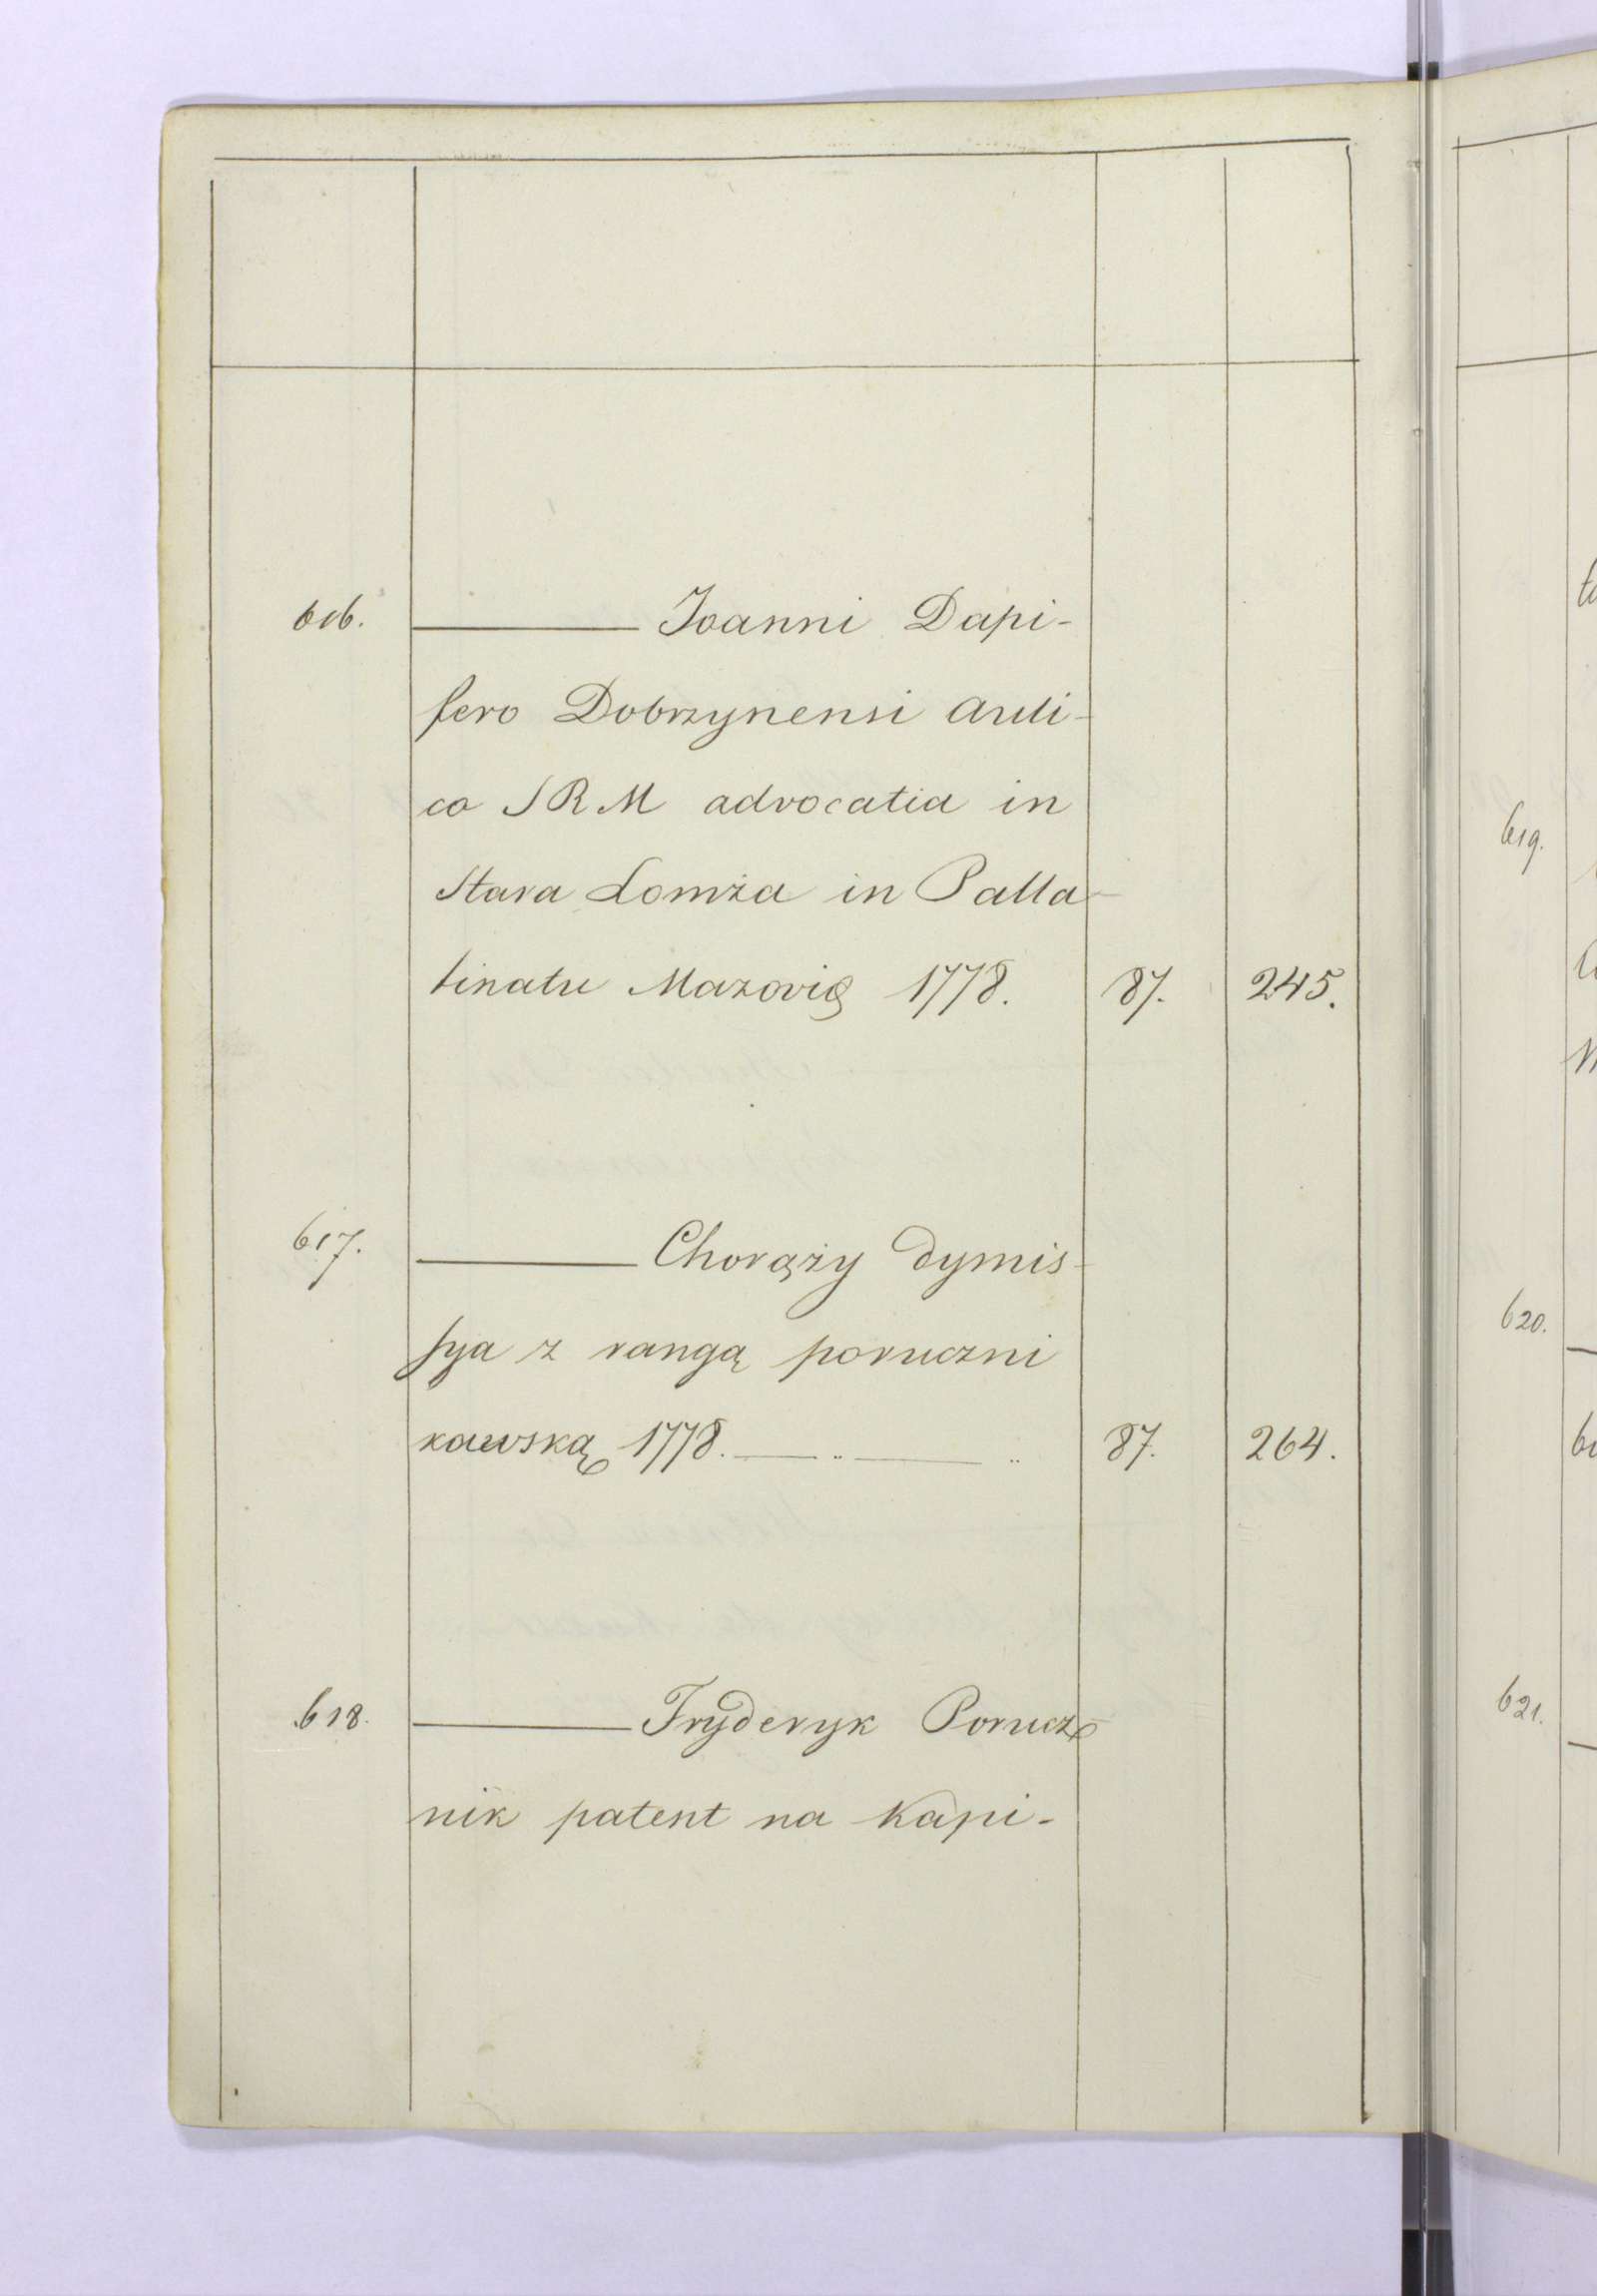 616. ——— Joanni Dapi-
fero Dobrzynensi auli-
co SRM advocatia in
Stara Łomża in Palla-
tinatu Mazovię 1778. 87. 245.
617. ——— Chorąży dymis-
sya z rangą poruczni
kowską 1778. — .. — .. 87. 264.
618. ——— Fryderyk Porucz-
nik patent na Kapi-
619.
620.
621.